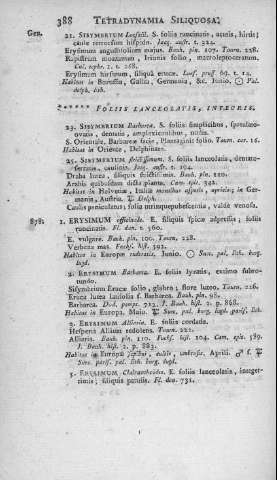 388 TETRADYNAMIA SILIQUOSA.
Gen. 21. SISYMBRIUM Loeselii. S. foliis runcinatis, acutis, hirtis;
caule retrorsum hispido. Jacq. austr. t. 324.
Erysimum angustifolium majus. Bauh. pin. 101. Tourn. 228.
Rapistrum montanum, Irionis folio, macrolepto
Col. ecphr. 1. t. 268.
Erysimum hirsutum, siliqua erucæ. Loes. pruss. 69. t. 14.
Habitat in Borussia, Gallia, Germania, &c. Junio. ☉ Pal.
delph. lith.
***** FOLIIS LANCEOLATIS, INTEGRIS.
23. SISYMBRIUM Barbareæ. S. foliis simplicibus,
ovatis, dentatis, amplexicaulibus, nudis.
S. Orientale, Barbareæ facie, Plantaginis folio. Tourn. cor. 16.
Habitat in Oriente, Delphinatu.
25. SISYMBRIUM strictissimum. S. foliis lanceolatis, dentato-
serratis, caulinis. Jacq. austr. t. 194.
Draba lutea, siliquis strictissimis. Bauh. pin. 110.
Arabis quibusdam dicta planta. Cam. epit. 342.
Habitat in Helvetiæ, Italiæ montibus opacis, apricis; in Ger-
mania, Austria. ♃ Delph.
Caulis paniculatus; folia utrinque pubescentia, valde venosa.
878. 1. ERYSIMUM officinale. E. siliquis spicæ adpressis; foliis
runcinatis. Fl. dan. t. 560.
E. vulgare. Bauh. pin. 100. Tourn. 228.
Verbena mas. Fuchs. hist. 592.
Habitat in Europæ ruderatis, Junio. ☉ Suec. pal. lith. burg.
lugd.
2. ERYSIMUM Barbarea. E. foliis lyratis, extimo subro-
tundo.
Sisymbrium Erucæ folio, glabro; flore luteo. Tourn. 226.
Eruca lutea latifolia s. Barbarea. Bauh. pin. 98.
Barbarea. Dod. pempt. 712. J. Bauh. hist. 2. p. 868.
Habitat in Europa, Maio. ♃ Suec. pal. burg. lugd. paris. lith.
3. ERYSIMUM Alliaria. E. foliis cordatis.
Hesperis Allium redolens. Tourn. 222.
Alliaria. Bauh. pin. 110. Fuchs. hist. 104. Cam. epit. 589.
J. Bauh. hist. 2. p. 883.
Habitat in Europæ sepibus, cultis, umbrosis, Aprili. ♂ s. ♃
Suec. paris. pal. lith. burg. lugd.
5. ERYSIMUM Cheiranthoides. E. foliis lanceolatis, integer-
rimis; siliquis patulis. Fl. dan. 731.